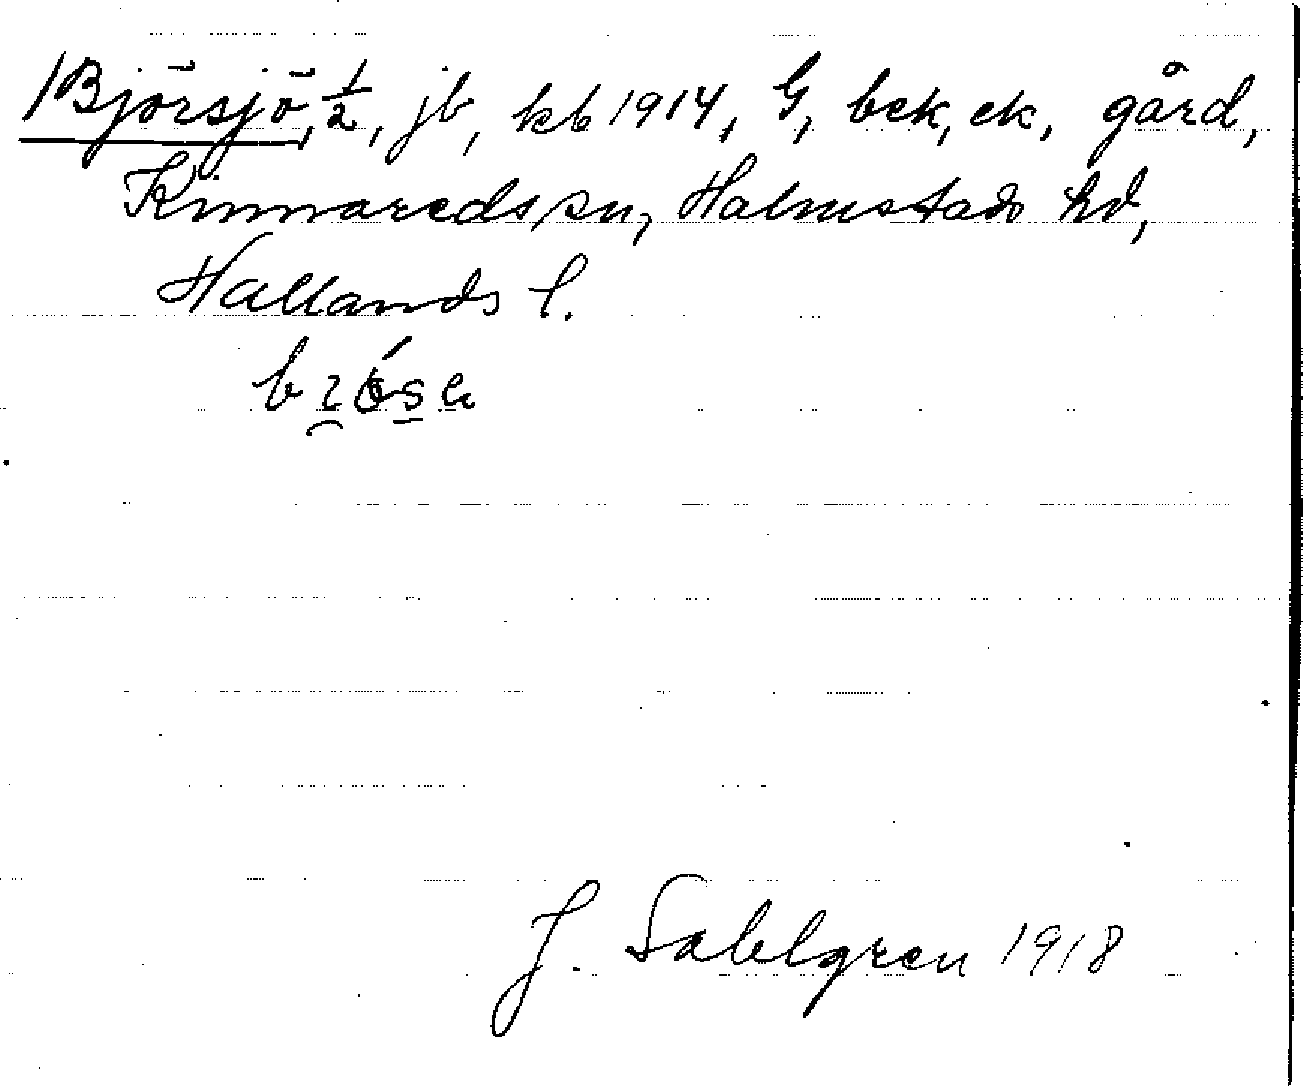 Björsjö, ½, jb, kb 1914, G, bek, ek, gård,
Kinnareds sn, Halmstads hd,
Hallands l.
J. Sahlgren 1918